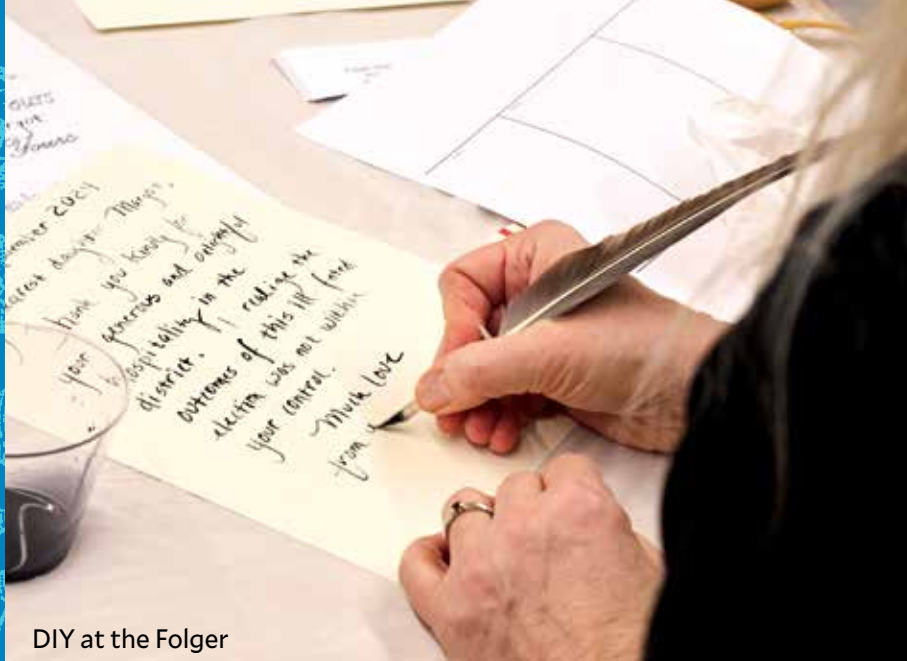 OURS
FOR
Yours
2024
dearest Margo,
Thank you kindly for
your generous and delightful
hospitality in the
district. I realize the
outcomes of this ill fated
election was not within
your control.
Much love
from
DIY at the Folger